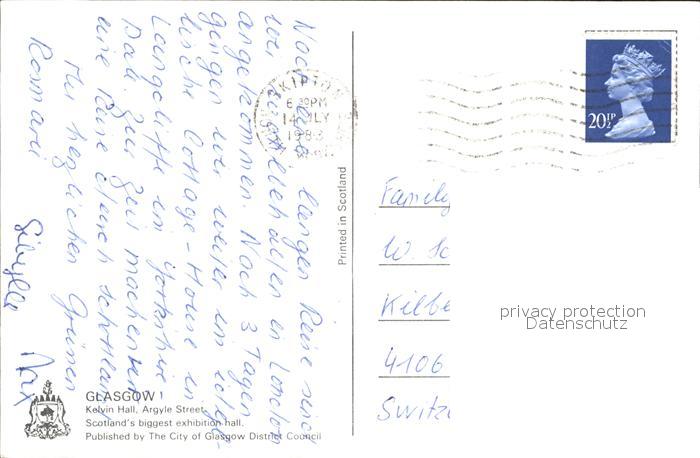 Nach einer langen Reise sind
wir in London
angekommen. Nach 3 Tagen
gingen wir weiter in
Cottage-House in
Langcliffe in Yorkshire
Zur Zeit machen wir
eine Reise durch Schottland
Mit herzlichen Grüssen
Rosmarie Sibylle Max
SKIPTON
6 30PM
14 JLY
1983
20½P
Printed in Scotland
Family
W. Sc
Kilbe
4106
Switz
privacy protection
Datenschutz
GLASGOW
Kelvin Hall, Argyle Street.
Scotland's biggest exhibition hall.
Published by The City of Glasgow District Council